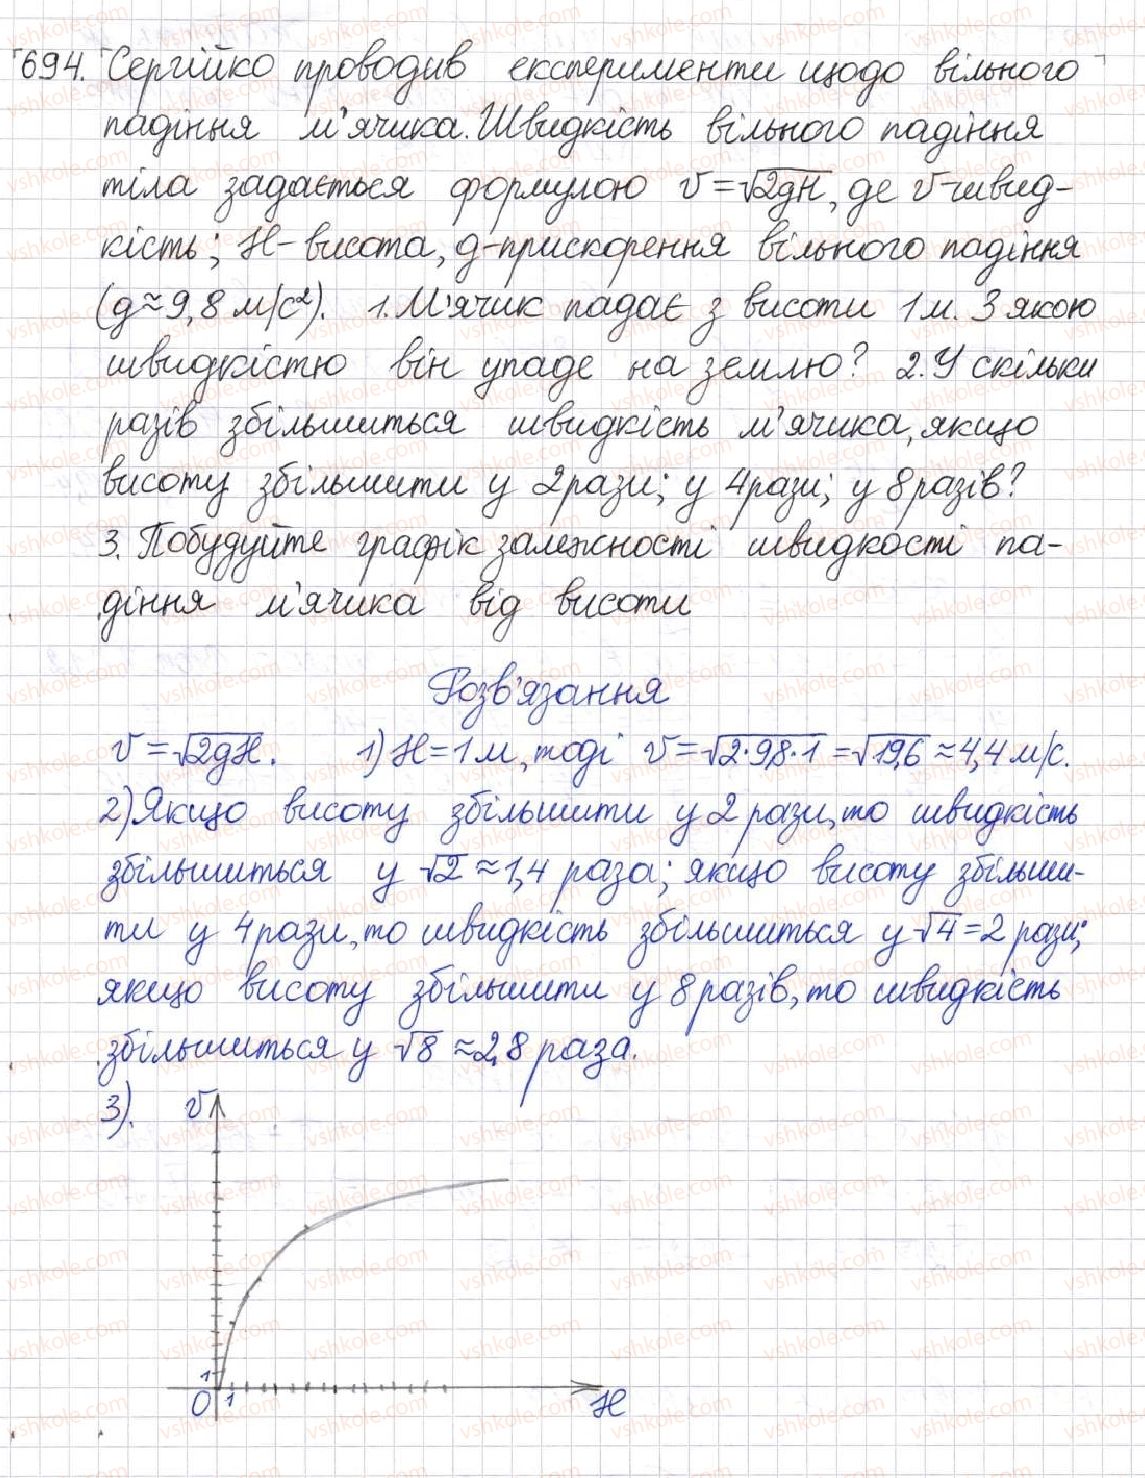 694. Сергійко проводив експерименти щодо вільного
падіння м'ячика. Швидкість вільного падіння
тіла задається формулою v=√2gH, де v-швид-
кість; H-висота, g-прискорення вільного падіння
(g≈9,8 м/с²). 1. М'ячик падає з висоти 1м. З якою
швидкістю він упаде на землю? 2. У скільки
разів збільшиться швидкість м'ячика, якщо
висоту збільшити у 2 рази; у 4 рази; у 8 разів?
3. Побудуйте графік залежності швидкості па-
діння м'ячика від висоти
Розв'язання
v=√2gH. 1) H=1 м, тоді v=√2·9,8·1=√19,6≈4,4 м/с.
2) Якщо висоту збільшити у 2 рази, то швидкість
збільшиться у √2≈1,4 раза; якщо висоту збільши-
ти у 4 рази, то швидкість збільшиться у √4=2 рази;
якщо висоту збільшити у 8 разів, то швидкість
збільшиться у √8≈2,8 раза.
3). v
1
0 1 H